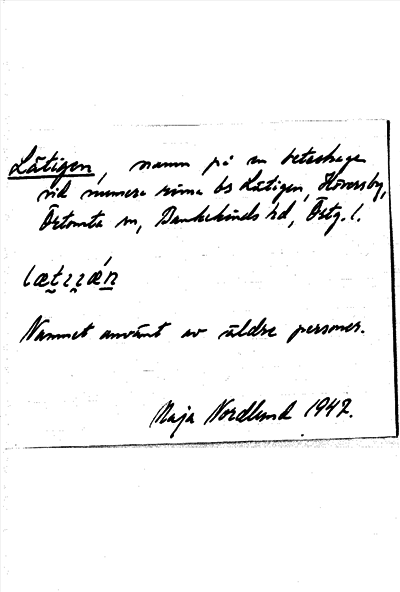 Lätigen, namn på en beteshage
vid numera rivna bs Lätigen, Höversby,
Örtomta sn, Bankekinds hd, Östg. l.
Namnet använt av äldre personer.
Maja Nordlund 1942.